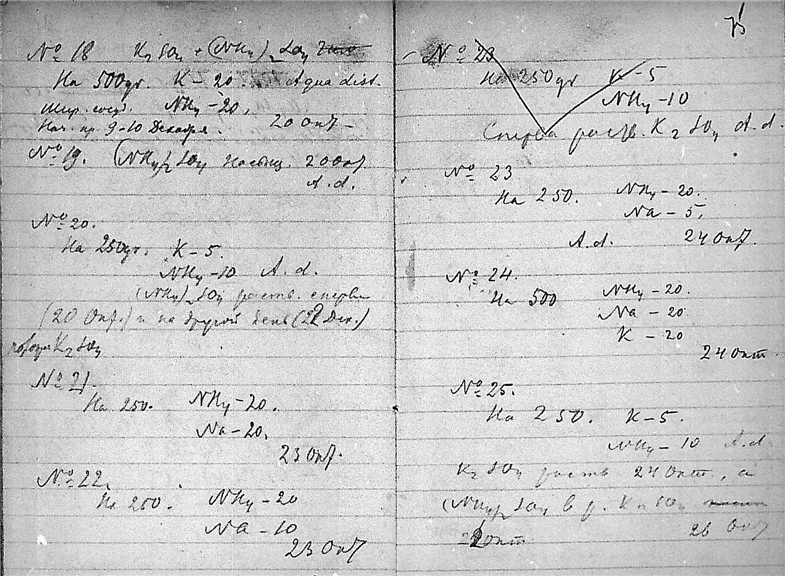 № 18 K₂SO₄ + (NH₄)₂SO₄
На 500gr. K – 20. Aqua dist.
NH₄ – 20.
Нач. пр. 9-10 Декабря. 20 Окт.
№ 19. (NH₄)₂SO₄ насыщ. 20 Окт.
A. d.
№ 20.
На 250gr. K – 5.
NH₄ – 10 A. d.
(NH₄)₂SO₄ раств. сперва
(20 Окт.) и на другой день (22 Dec.)
K₂SO₄
№ 21.
На 250. NH₄ – 20.
Na – 20.
23 Окт.
№ 22.
На 250. NH₄ – 20
Na – 10
23 Окт
№ 23
На 250gr K – 5
NH₄ – 10
Сперва раств. K₂SO₄ A. d.
№ 23
На 250. NH₄ – 20.
Na – 5.
A. d. 24 Окт.
№ 24.
На 500 NH₄ – 20.
Na – 20
K – 20
24 окт.
№ 25.
На 250. K – 5.
NH₄ – 10 A. d.
K₂SO₄ раств 24 окт, а
(NH₄)₂SO₄ в р. K₂SO₄
26 Окт
окт